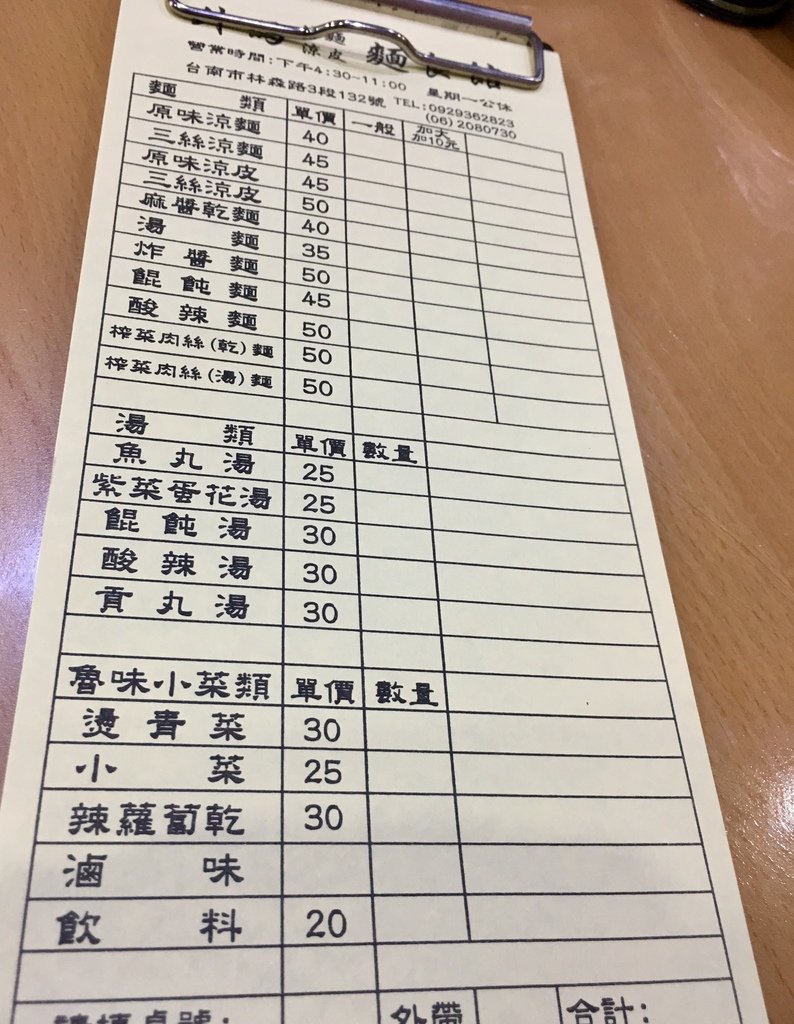 涼皮 麵
營業時間:下午4:30-11:00 星期一公休
台南市林森路3段132號 TEL:0929362823
(06)2080730
麵類 單價 一般 加大加10元
原味涼麵 40
三絲涼麵 45
原味涼皮 45
三絲涼皮 50
麻醬乾麵 40
湯麵 35
炸醬麵 50
餛飩麵 45
酸辣麵 50
榨菜肉絲(乾)麵 50
榨菜肉絲(湯)麵 50
湯類 單價 數量
魚丸湯 25
紫菜蛋花湯 25
餛飩湯 30
酸辣湯 30
貢丸湯 30
魯味小菜類 單價 數量
燙青菜 30
小菜 25
辣蘿蔔乾 30
滷味
飲料 20
請填桌號: 外帶 合計: